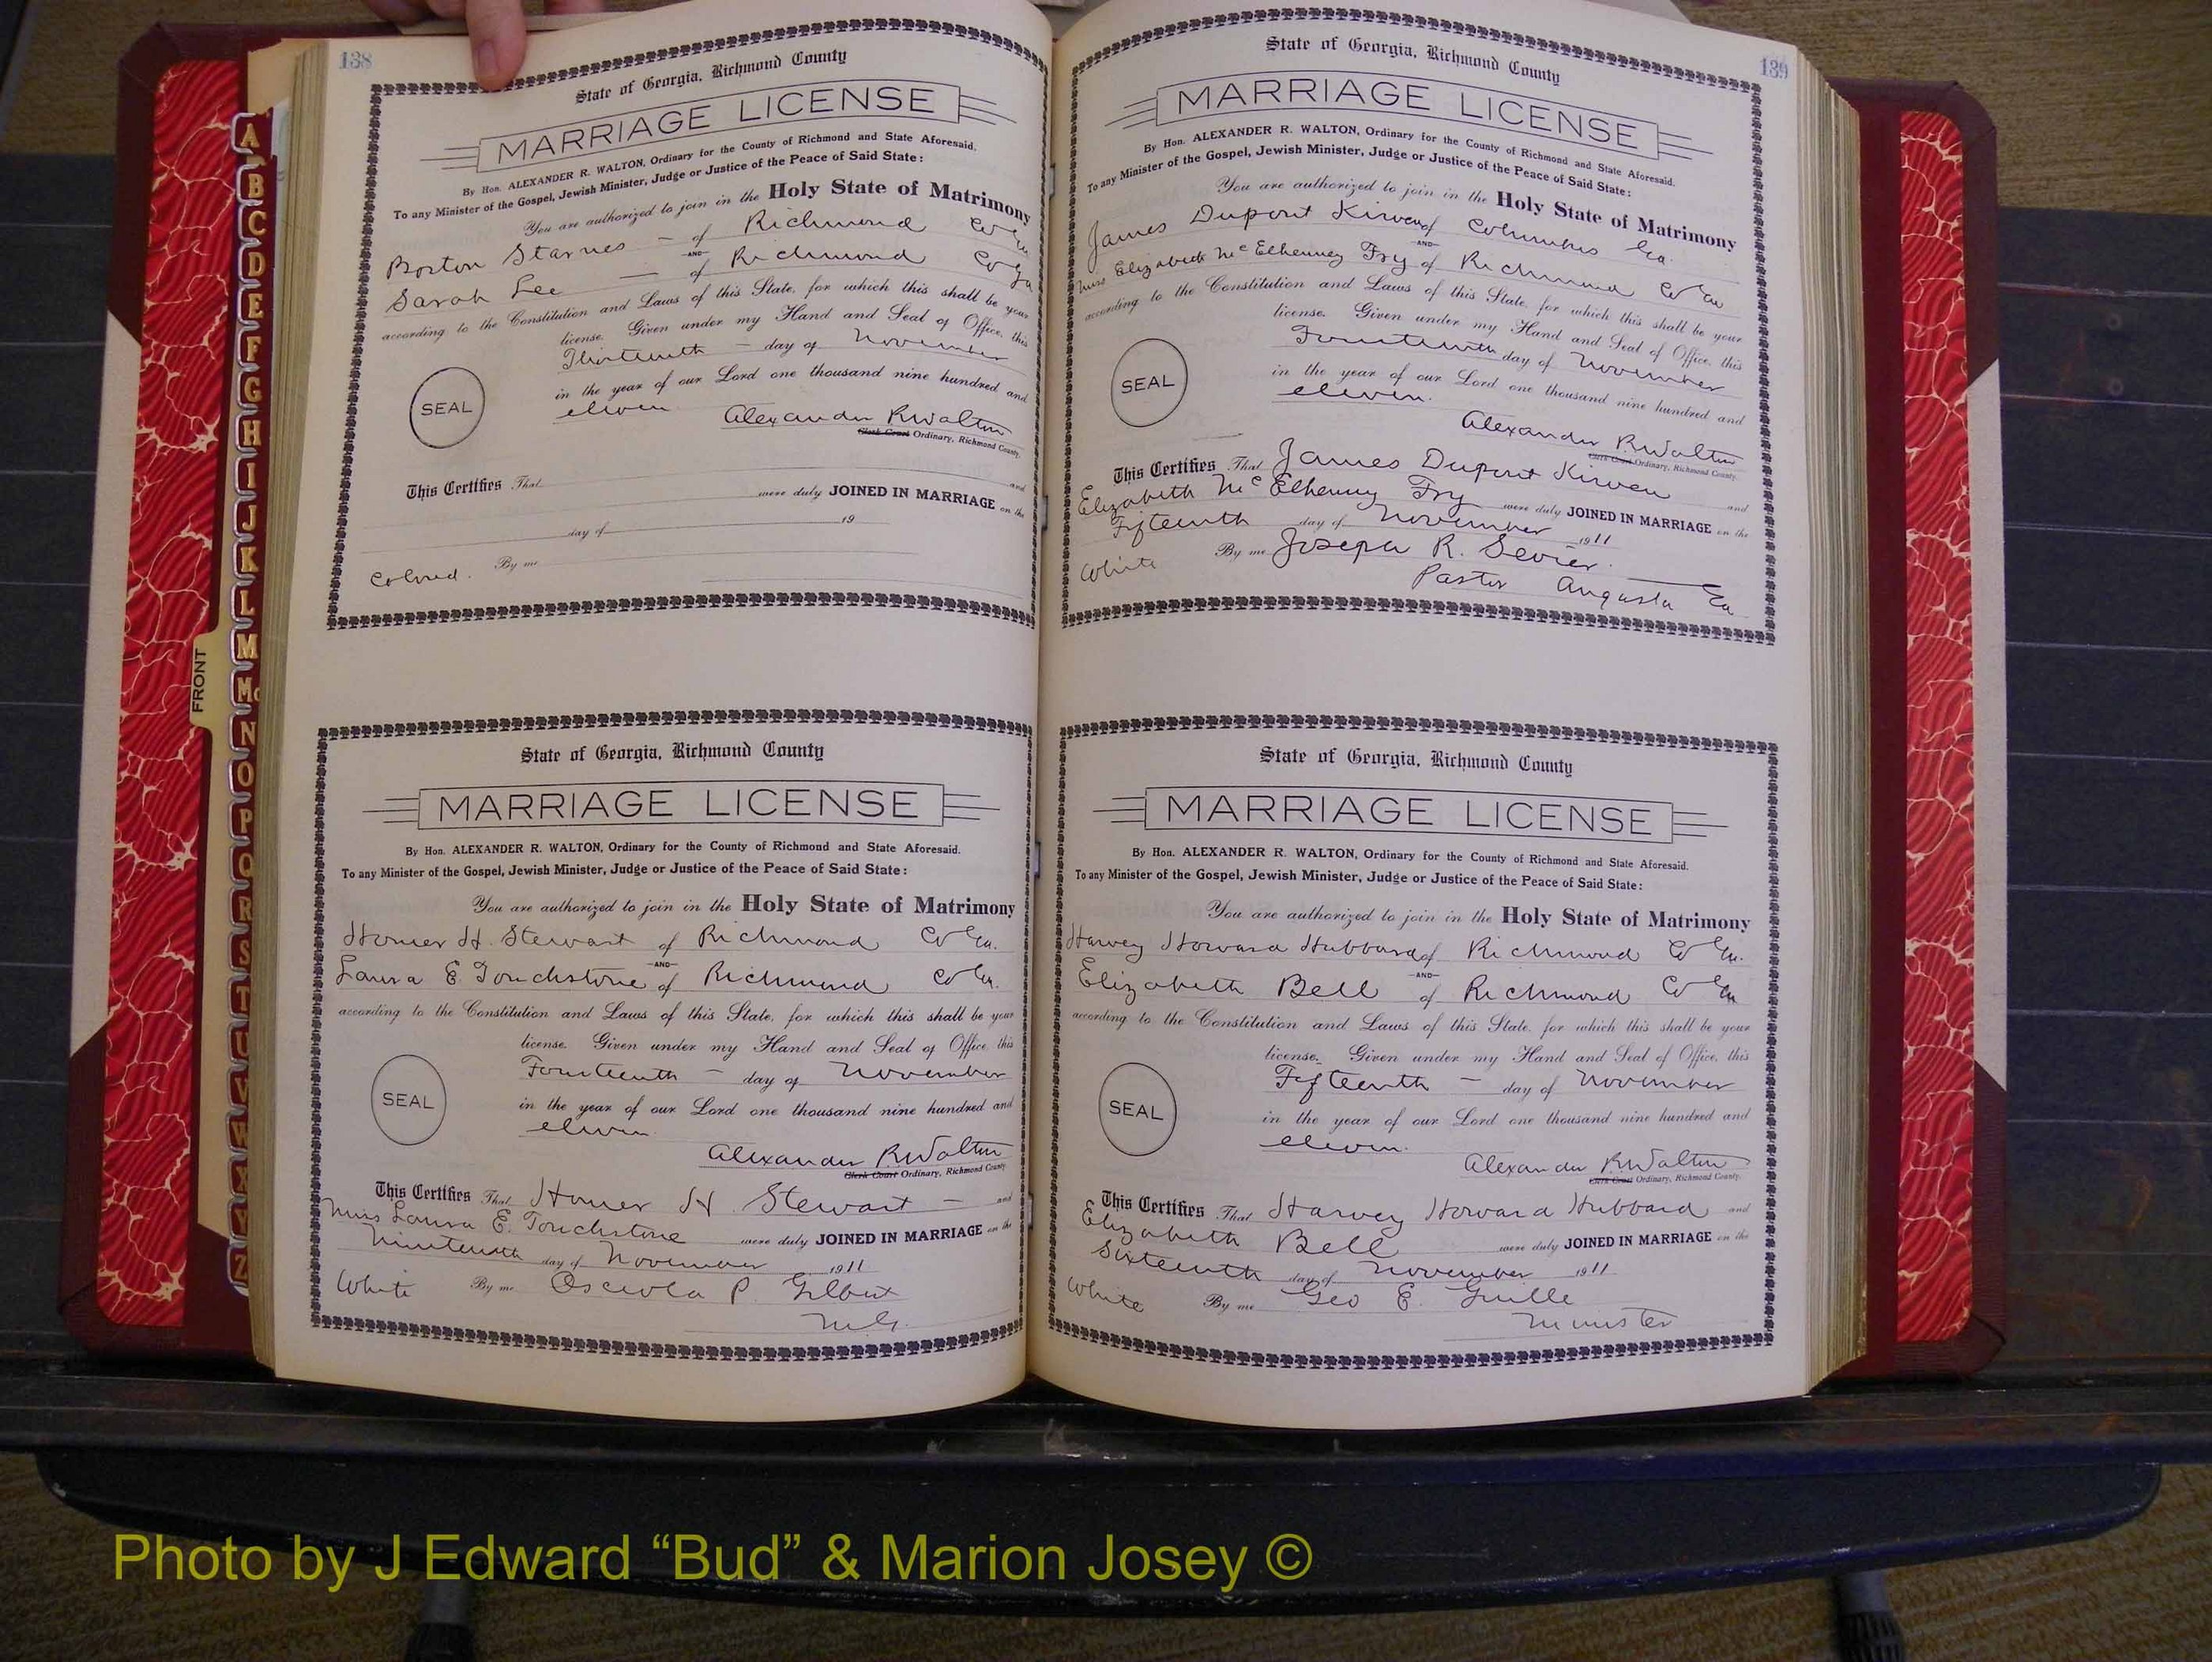 138
State of Georgia, Richmond County
MARRIAGE LICENSE
By Hon. ALEXANDER R. WALTON, Ordinary for the County of Richmond and State Aforesaid.
To any Minister of the Gospel, Jewish Minister, Judge or Justice of the Peace of Said State:
You are authorized to join in the Holy State of Matrimony
Boston Starnes - of Richmond Co Ga
AND
Sarah Lee — of Richmond Co Ga
according to the Constitution and Laws of this State, for which this shall be your
license. Given under my Hand and Seal of Office, this
Thirteenth - day of November
in the year of our Lord one thousand nine hundred and
eleven
SEAL
Alexander R Walton
Clerk Court Ordinary, Richmond County.
This Certifies That and
were duly JOINED IN MARRIAGE on the
day of 19
Colored. By me
State of Georgia, Richmond County
MARRIAGE LICENSE
By Hon. ALEXANDER R. WALTON, Ordinary for the County of Richmond and State Aforesaid.
To any Minister of the Gospel, Jewish Minister, Judge or Justice of the Peace of Said State:
You are authorized to join in the Holy State of Matrimony
Homer H. Stewart of Richmond Co Ga.
AND
Laura E Touchstone of Richmond Co Ga.
according to the Constitution and Laws of this State, for which this shall be your
license. Given under my Hand and Seal of Office, this
Fourteenth - day of November
SEAL
in the year of our Lord one thousand nine hundred and
eleven
Alexander R Walton
Clerk Court Ordinary, Richmond County
This Certifies That Homer H. Stewart - and
Miss Laura E. Touchstone were duly JOINED IN MARRIAGE on the
Nineteenth day of November 1911
White By me Osceola P. Gilbert
M.G.
139
State of Georgia, Richmond County
MARRIAGE LICENSE
By Hon. ALEXANDER R. WALTON, Ordinary for the County of Richmond and State Aforesaid.
To any Minister of the Gospel, Jewish Minister, Judge or Justice of the Peace of Said State:
You are authorized to join in the Holy State of Matrimony
James Dupont Kirven of Columbus Ga.
AND
Miss Elizabeth McElhenney Fry of Richmond Co Ga
according to the Constitution and Laws of this State, for which this shall be your
license. Given under my Hand and Seal of Office, this
Fourteenth day of November
SEAL
in the year of our Lord one thousand nine hundred and
eleven.
Alexander R. Walton
Clerk Court Ordinary, Richmond County.
This Certifies That James Dupont Kirven
and
Elizabeth McElhenny Fry were duly JOINED IN MARRIAGE on the
Fifteenth day of November 1911
White By me Joseph R. Sevier.
Pastor Augusta Ga
State of Georgia, Richmond County
MARRIAGE LICENSE
By Hon. ALEXANDER R. WALTON, Ordinary for the County of Richmond and State Aforesaid.
To any Minister of the Gospel, Jewish Minister, Judge or Justice of the Peace of Said State:
You are authorized to join in the Holy State of Matrimony
Harvey Howard Hubbard of Richmond Co Ga.
AND
Elizabeth Bell of Richmond Co Ga
according to the Constitution and Laws of this State, for which this shall be your
license. Given under my Hand and Seal of Office, this
Fifteenth - day of November
SEAL
in the year of our Lord one thousand nine hundred and
eleven.
Alexander R. Walton
Clerk Court Ordinary, Richmond County.
This Certifies That Harvey Howard Hubbard and
Elizabeth Bell were duly JOINED IN MARRIAGE on the
Sixteenth day of November 1911
White By me Geo E. Guille
Minister
FRONT
A
B
C
D
E
F
G
H
I
J
K
L
M
Mc
N
O
P
Q
R
S
T
U
V
W
X
Y
Z
Photo by J Edward “Bud” & Marion Josey ©